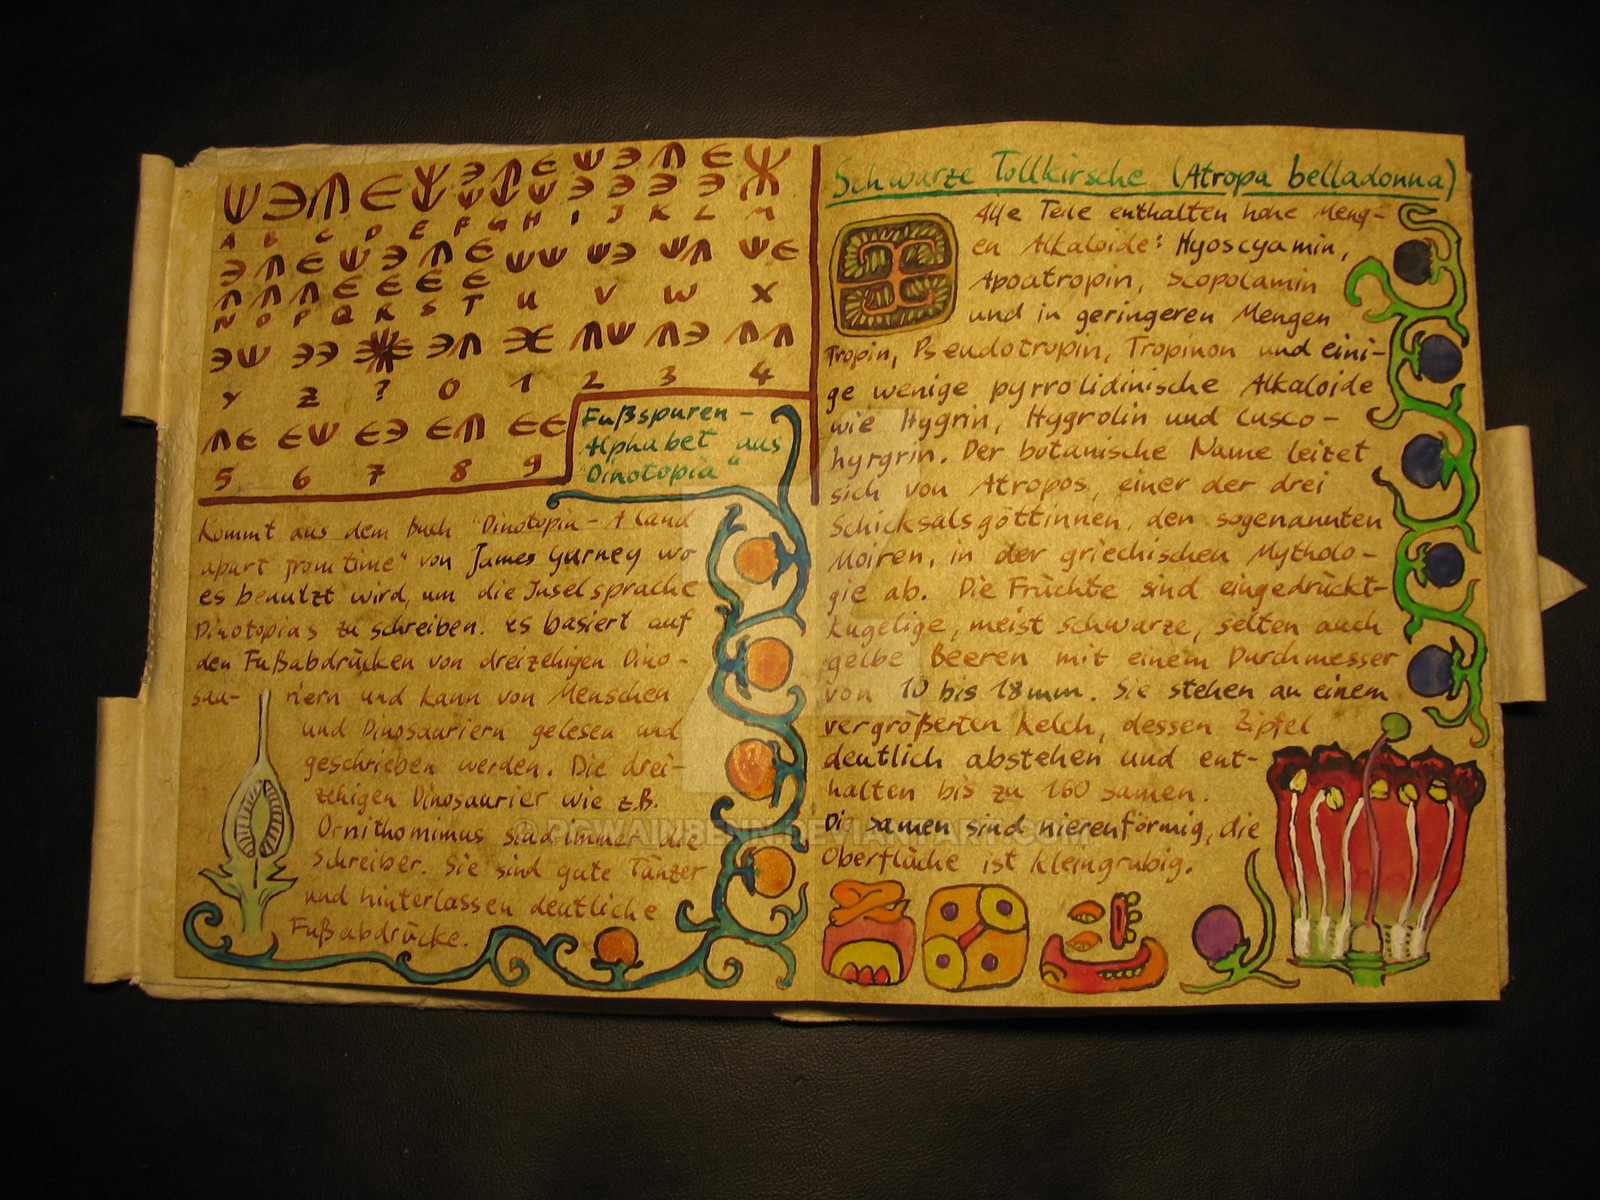 A B C D E F G H I J K L M
N O P Q R S T U V W X
Y Z ? 0 1 2 3 4
5 6 7 8 9
Fußspuren-
Alphabet aus
"Dinotopia"
Kommt aus dem Buch "Dinotopia - A land
apart from time" von James Gurney wo
es benutzt wird, um die Inselsprache
Dinotopias zu schreiben. Es basiert auf
den Fußabdrücken von dreizehigen Dino-
sau- riern und kann von Menschen
und Dinosauriern gelesen und
geschrieben werden. Die drei-
zehigen Dinosaurier wie z.B.
Ornithomimus sind immer die
Schreiber. Sie sind gute Tänzer
und hinterlassen deutliche
Fußabdrücke.
Schwarze Tollkirsche (Atropa belladonna)
Alle Teile enthalten hohe Meng-
en Alkaloide: Hyoscyamin,
Apoatropin, Scopolamin
und in geringeren Mengen
Tropin, Pseudotropin, Tropinon und eini-
ge wenige pyrrolidinische Alkaloide
wie Hygrin, Hygrolin und Cusco-
hyrgrin. Der botanische Name leitet
sich von Atropos, einer der drei
Schicksalsgöttinnen, den sogenannten
Moiren, in der griechischen Mytholo-
gie ab. Die Früchte sind eingedrückt-
kugelige, meist schwarze, selten auch
gelbe Beeren mit einem Durchmesser
von 10 bis 18mm. Sie stehen an einem
vergrößerten Kelch, dessen Zipfel
deutlich abstehen und ent-
halten bis zu 160 Samen.
Die Samen sind nierenförmig, die
Oberfläche ist kleingrubig.